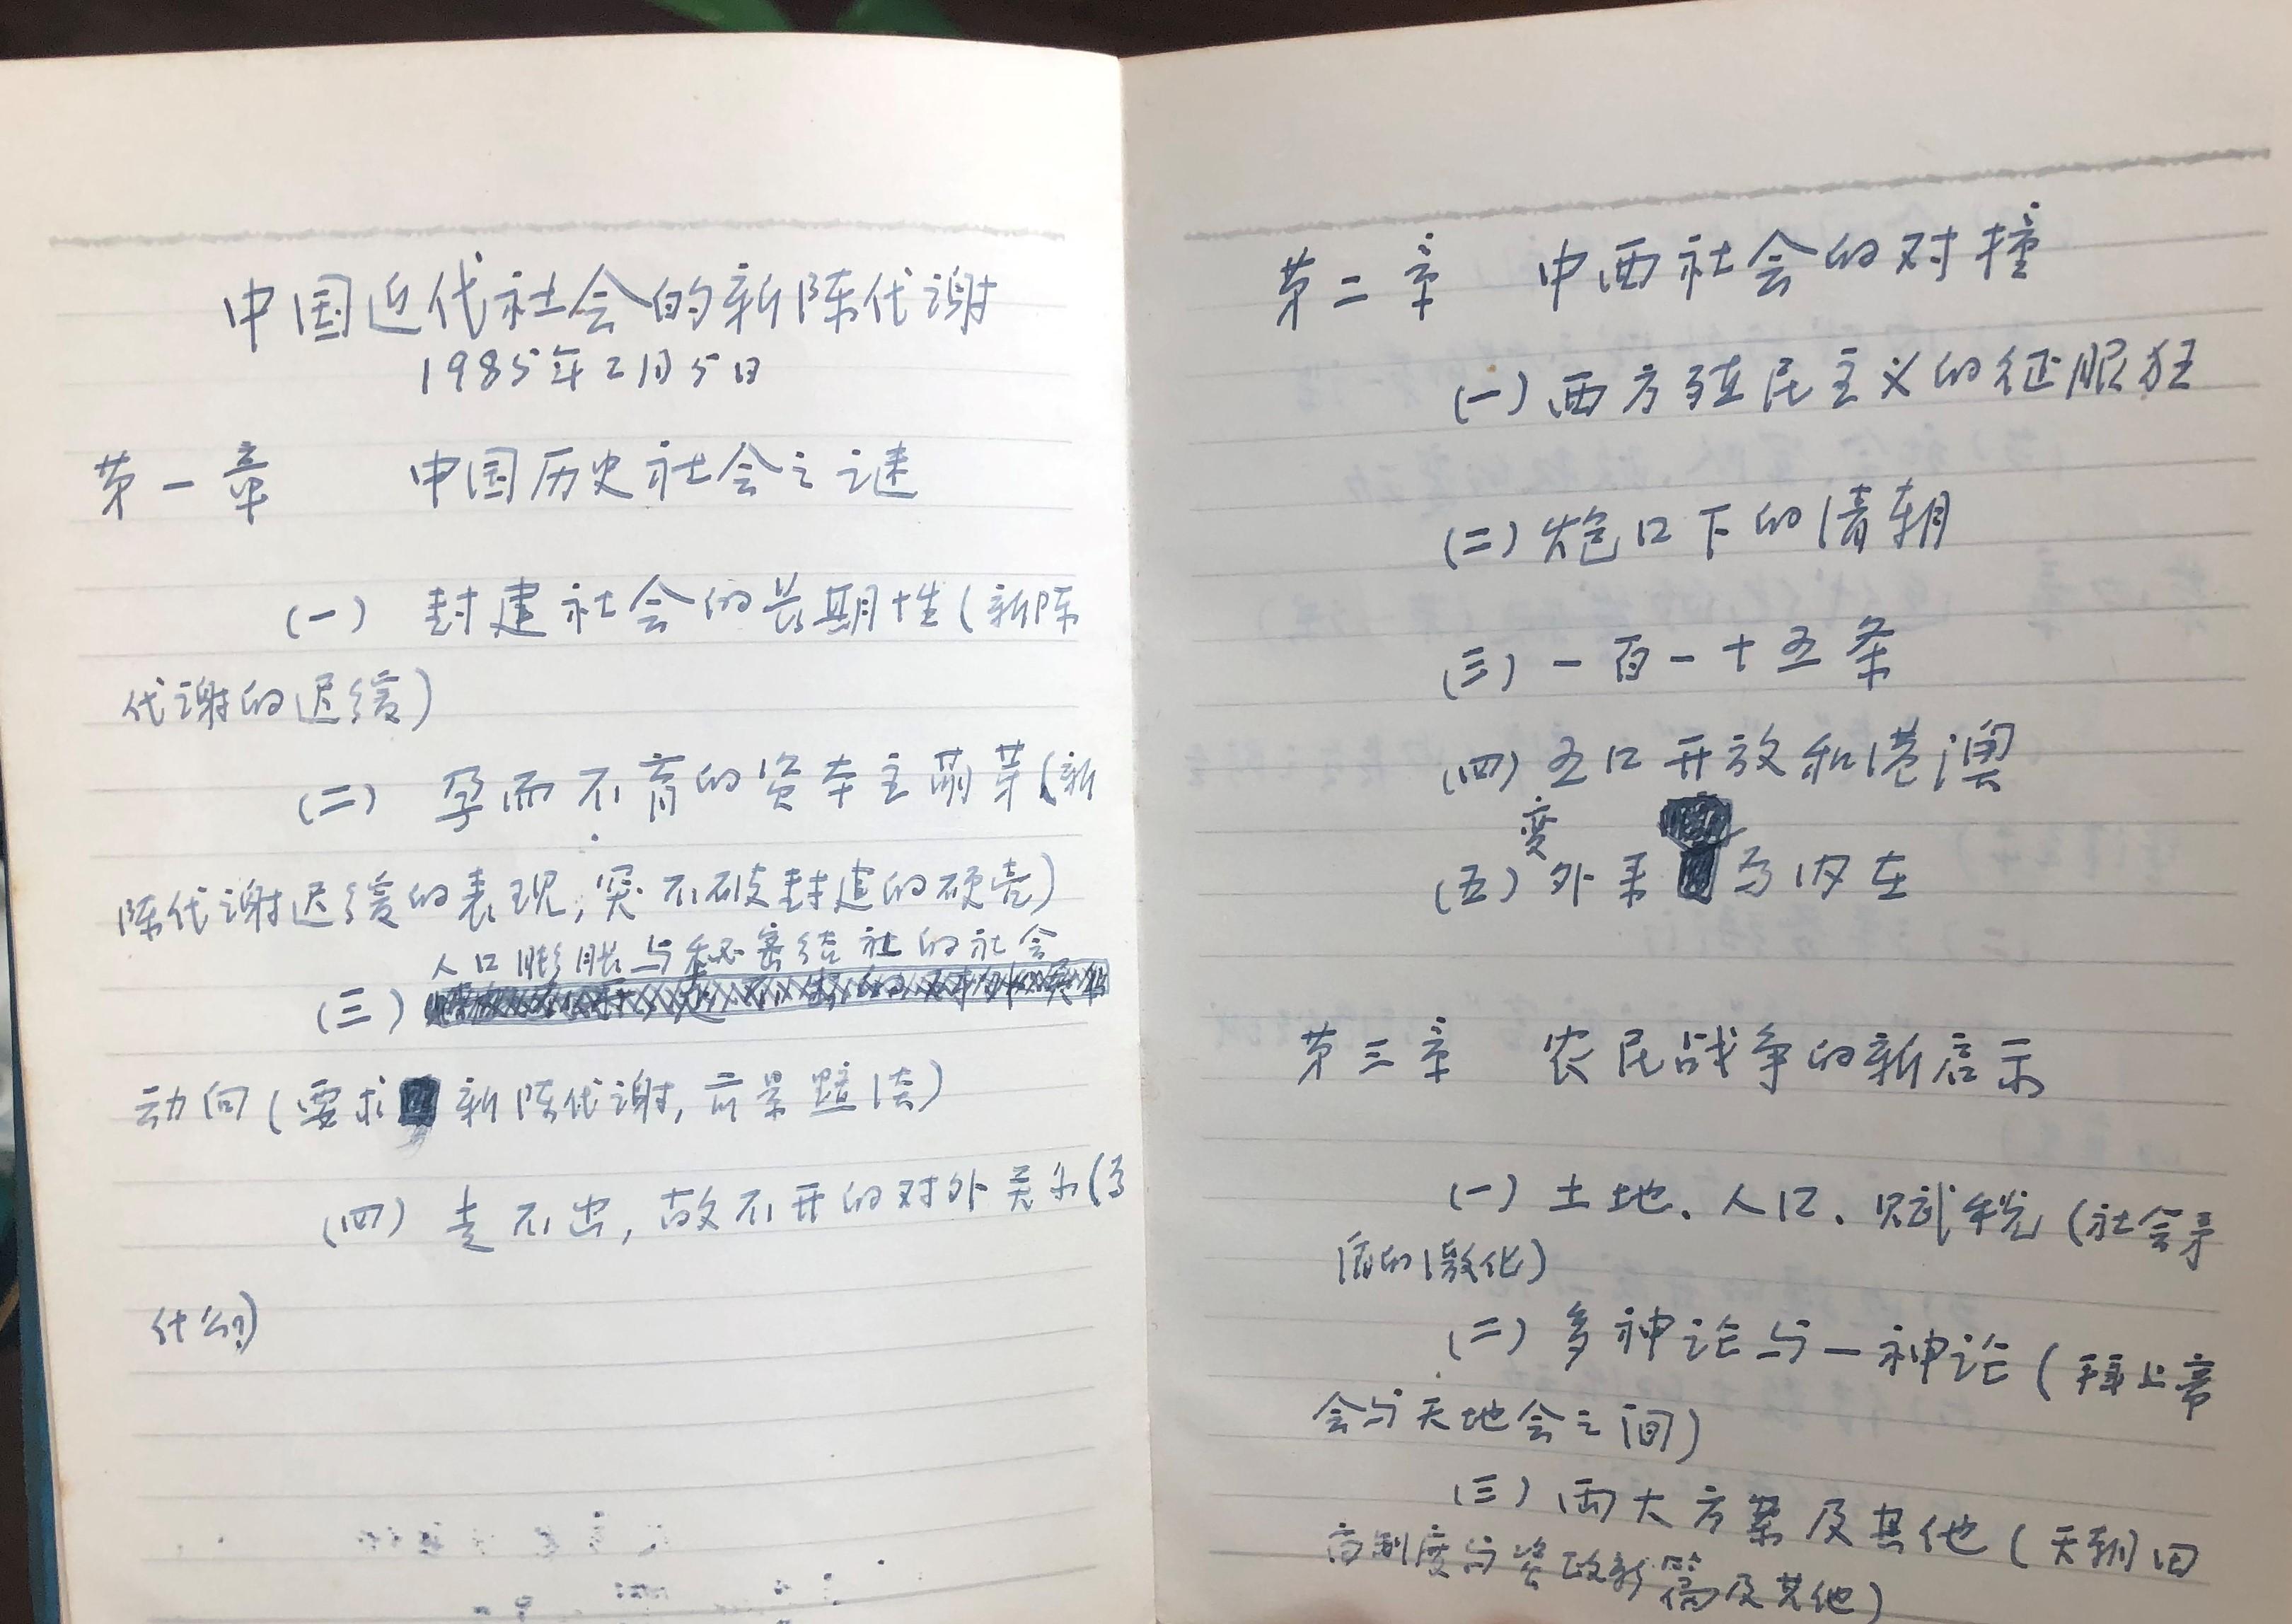 中国近代社会的新陈代谢
1985年2月5日
第一章 中国历史社会之谜
(一) 封建社会的长期性(新陈
代谢的迟缓)
(二) 孕而不育的资本主萌芽(新
陈代谢迟缓的表现,突不破封建的硬壳)
人口膨胀与秘密结社的社会
(三)
动向(要求新陈代谢,
(四) 走不出,放不开的对外关系(
第二章 中西社会的对撞
(一)西方殖民主义的征服狂
(二)炮口下的清朝
(三)一百一十五条
(四)五口开放和港澳
变
(五)外来与内在
第三章 农民战争的新启示
(一)土地、人口、赋税(社会矛
盾的激化)
(二)多神论与一神论(拜上帝
会与天地会之间)
(三)两大方案及其他(天朝田
亩制度与资政新篇及其他)